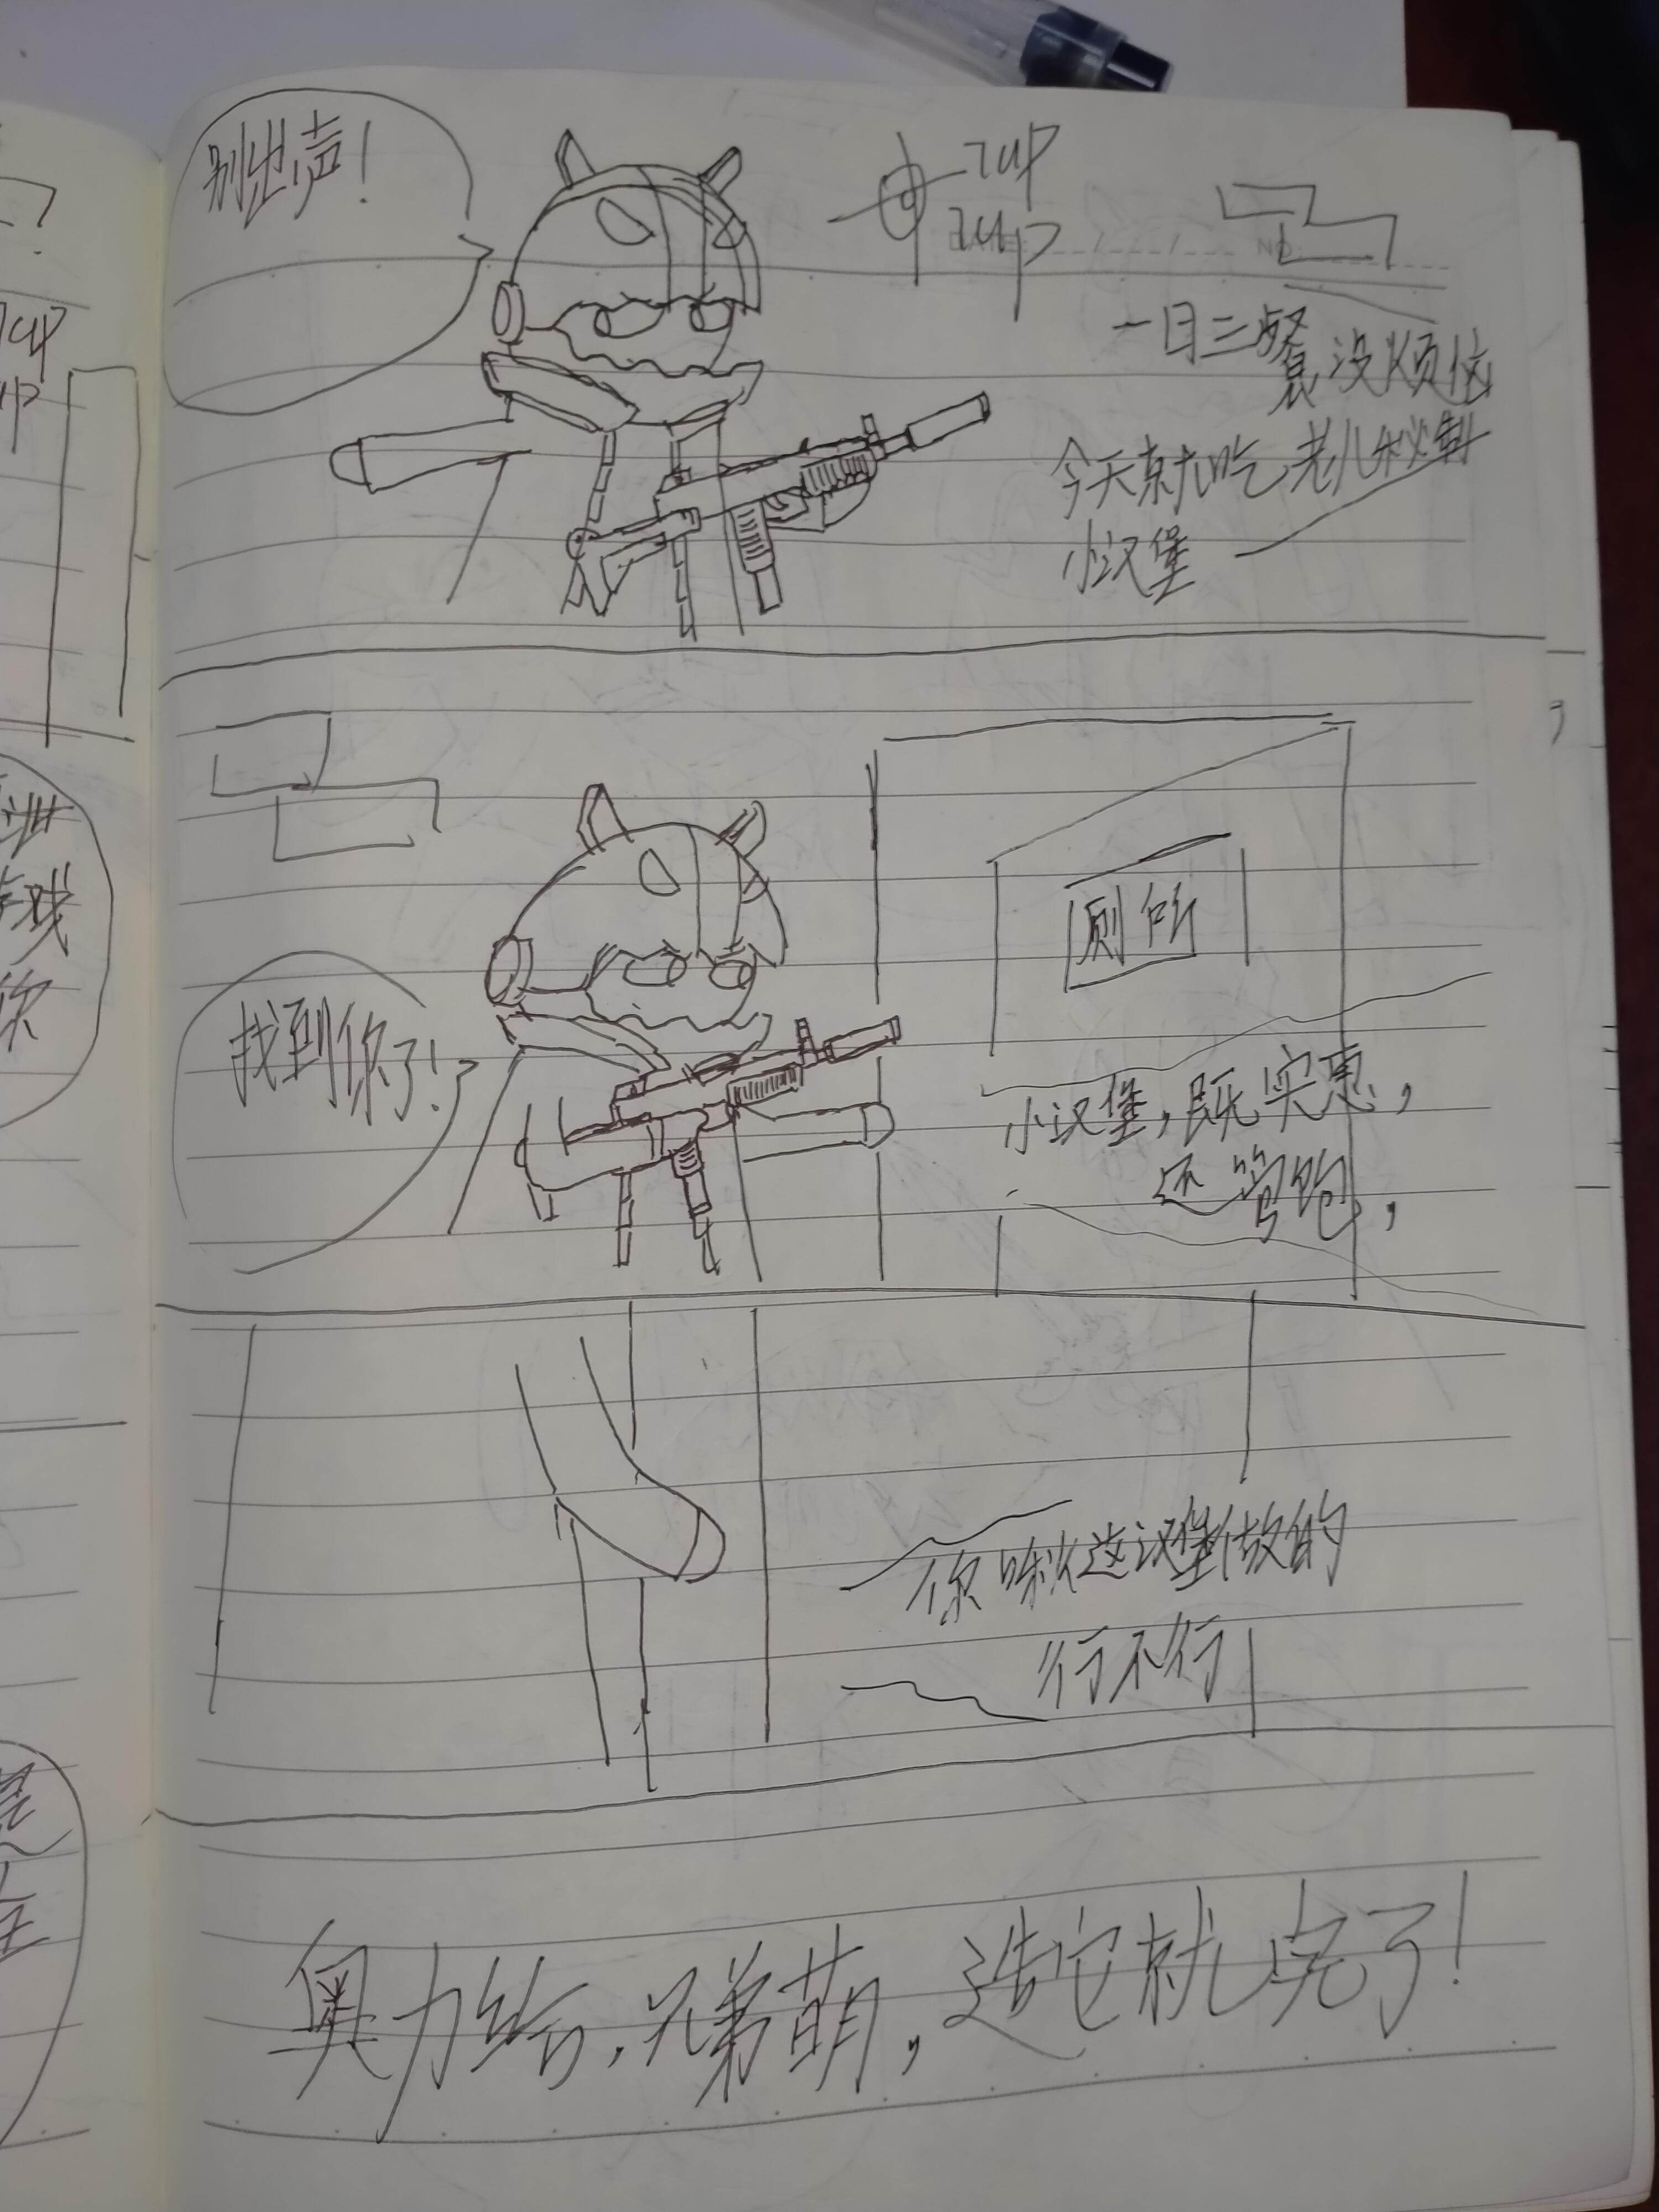 别出声！
7up
7up
DATE NO
一日三餐没烦恼
今天就吃老八秘制
小汉堡
厕所
找到你了！
小汉堡，既实惠，
还管饱，
你瞅这汉堡做的
行不行
奥力给，兄弟萌，造它就完了！